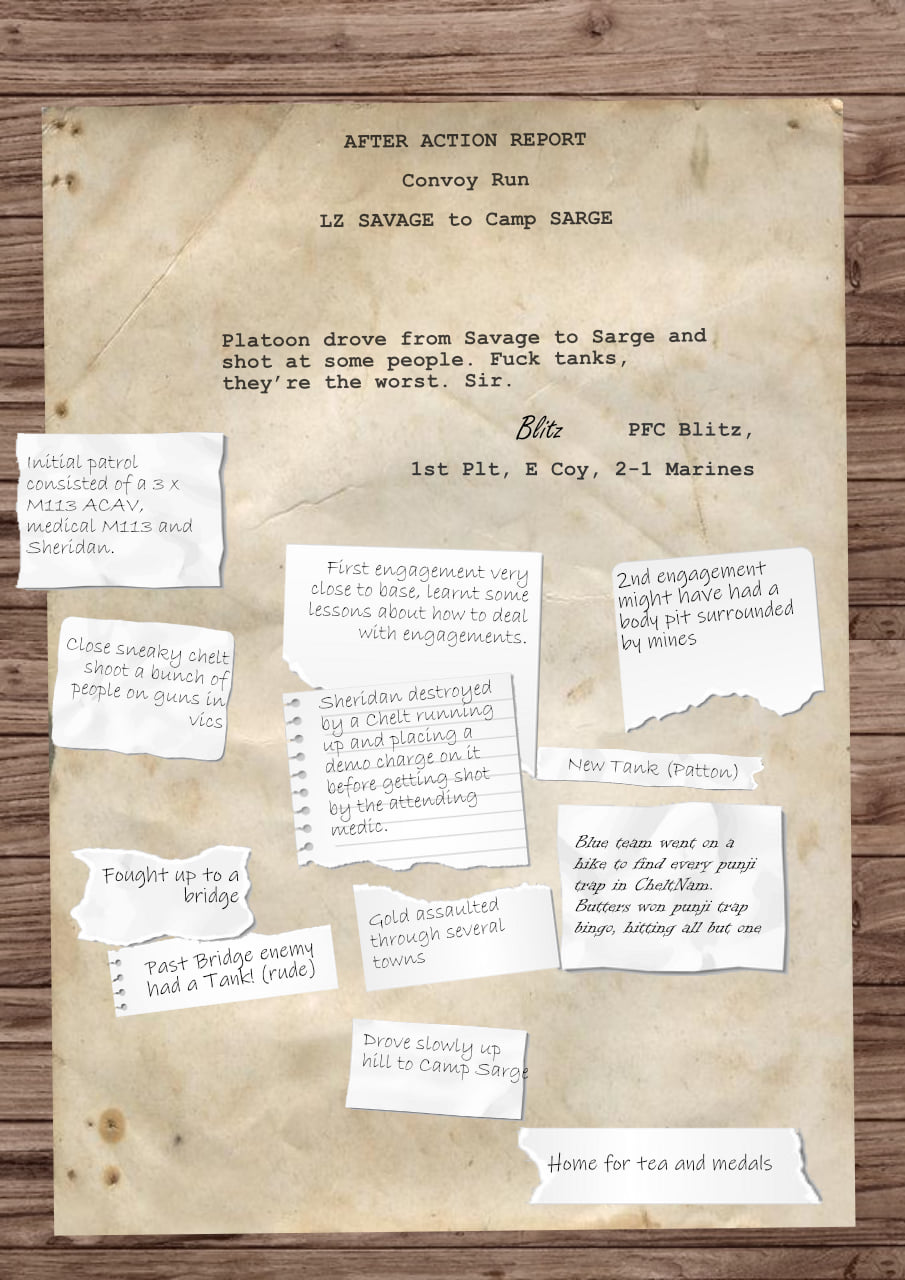 AFTER ACTION REPORT
Convoy Run
LZ SAVAGE to Camp SARGE
Platoon drove from Savage to Sarge and
shot at some people. Fuck tanks,
they're the worst. Sir.
Blitz PFC Blitz,
1st Plt, E Coy, 2-1 Marines
Initial patrol
consisted of a 3 x
M113 ACAV,
medical M113 and
Sheridan.
First engagement very
close to base, learnt some
lessons about how to deal
with engagements.
2nd engagement
might have had a
body pit surrounded
by mines
Close sneaky chelt
shoot a bunch of
people on guns in
vics
Sheridan destroyed
by a Chelt running
up and placing a
demo charge on it
before getting shot
by the attending
medic.
New Tank (Patton)
Blue team went on a
hike to find every punji
trap in CheltNam.
Butters won punji trap
bingo, hitting all but one
Fought up to a
bridge
Past Bridge enemy
had a Tank! (rude)
Gold assaulted
through several
towns
Drove slowly up
hill to Camp Sarge
Home for tea and medals